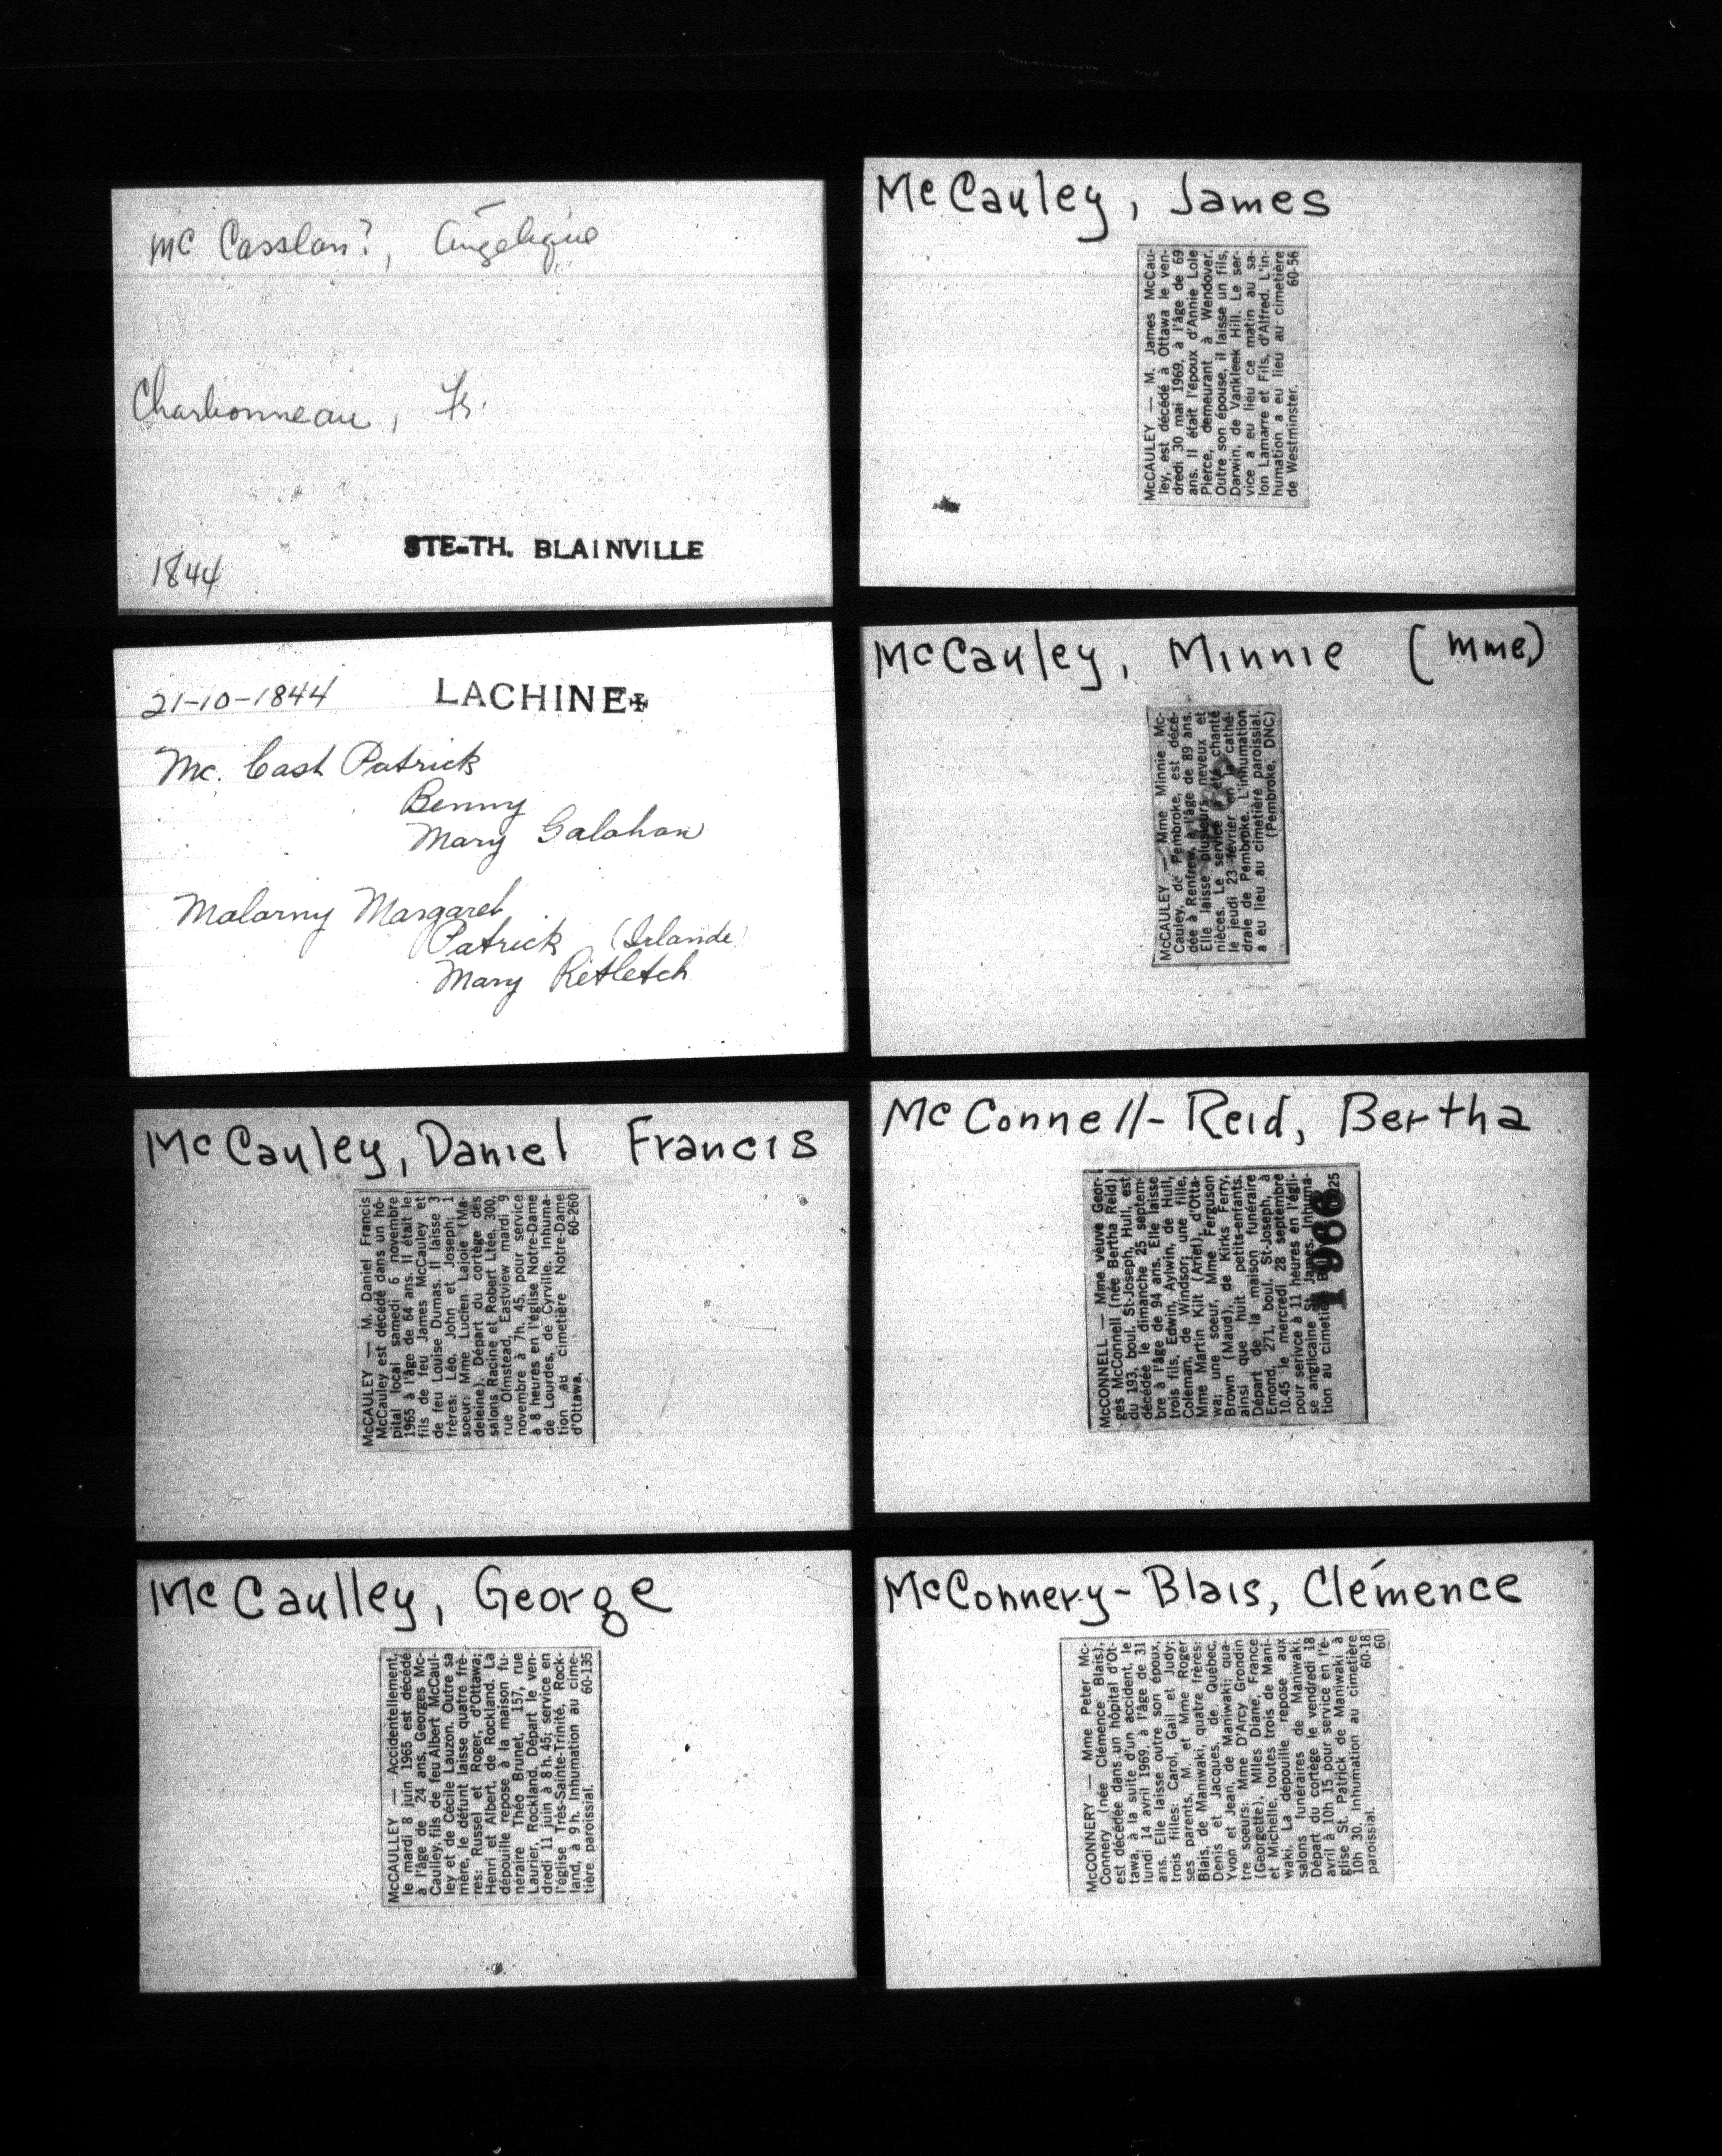 Mc Casslan?, Angélique
Charbonneau, Fs.
STE-TH. BLAINVILLE
1844
21-10-1844 LACHINE
Mc. Cast Patrick
Benny
Mary Galahan
Malarny Margaret
Patrick (Irlande)
Mary Retletch
McCauley, Daniel Francis
McCAULEY — M. Daniel Francis
McCauley est décédé dans un hô-
pital local samedi 6 novembre
1965 à l'âge de 64 ans. Il était le
fils de feu James McCauley et
de feu Louise Dumas. Il laisse 3
frères: Léo, John et Joseph; 1
soeur: Mme Lucien Lajoie (Ma-
deleine). Départ du cortège des
salons Racine et Robert Ltée, 300,
rue Olmstead, Eastview mardi 9
novembre à 7h. 45, pour service
à 8 heures en l'église Notre-Dame
de Lourdes, de Cyrville. Inhuma-
tion au cimetière Notre-Dame
d'Ottawa. 60-260
McCaulley, George
McCAULLEY — Accidentellement,
le mardi 8 juin 1965 est décédé
à l'âge de 24 ans, Georges Mc-
Caulley, fils de feu Albert McCaul-
ley et de Cécile Lauzon. Outre sa
mère, le défunt laisse quatre frè-
res: Russel et Roger, d'Ottawa;
Henri et Albert, de Rockland. La
dépouille repose à la maison fu-
néraire Théo Brunet, 157, rue
Laurier, Rockland. Départ le ven-
dredi 11 juin à 8 h. 45; service en
l'église Très-Sainte-Trinité, Rock-
land, à 9 h. Inhumation au cime-
tière paroissial. 60-135
McCauley, James
McCAULEY — M. James McCau-
ley, est décédé à Ottawa le ven-
dredi 30 mai 1969, à l'âge de 69
ans. Il était l'époux d'Annie Lole
Pierce, demeurant à Wendover.
Outre son épouse, il laisse un fils,
Darwin, de Vankleek Hill. Le ser-
vice a eu lieu ce matin au sa-
lon Lamarre et Fils, d'Alfred. L'in-
humation a eu lieu au cimetière
de Westminster. 60-56
McCauley, Minnie (Mme)
McCAULEY — Mme Minnie Mc-
Cauley, de Pembroke, est décé-
dée à Renfrew, à l'âge de 89 ans.
Elle laisse plusieurs neveux et
nièces. Le service a été chanté
le jeudi 23 février en la cathé-
drale de Pembroke. L'inhumation
a eu lieu au cimetière paroissial.
(Pembroke, DNC)
McConnell-Reid, Bertha
McCONNELL — Mme veuve Geor-
ges McConnell (née Bertha Reid)
du 193, boul. St-Joseph, Hull, est
décédée le dimanche 25 septem-
bre à l'âge de 94 ans. Elle laisse
trois fils, Edwin, Aylwin, de Hull,
Coleman, de Windsor; une fille,
Mme Martin Kilt (Ariel), d'Otta-
wa; une soeur, Mme Ferguson
Brown (Maud), de Kirks Ferry,
ainsi que huit petits-enfants.
Départ de la maison funéraire
Emond, 271, boul. St-Joseph, à
10.45 le mercredi 28 septembre
pour serivce à 11 heures en l'égli-
se anglicaine St. James. Inhuma-
tion au cimetière
1966
McConnery-Blais, Clémence
McCONNERY — Mme Peter Mc-
Connery (née Clémence Blais),
est décédée dans un hôpital d'Ot-
tawa, à la suite d'un accident, le
lundi 14 avril 1969, à l'âge de 31
ans. Elle laisse outre son époux,
trois filles: Carol, Gail et Judy;
ses parents, M. et Mme Roger
Blais, de Maniwaki, quatre frères:
Denis et Jacques, de Québec,
Yvon et Jean, de Maniwaki; qua-
tre soeurs: Mme D'Arcy Grondin
(Georgette), Mlles Diane, France
et Michelle, toutes trois de Mani-
waki. La dépouille repose aux
salons funéraires de Maniwaki.
Départ du cortège le vendredi 18
avril à 10h 15 pour service en l'é-
glise St. Patrick de Maniwaki à
10h 30. Inhumation au cimetière
paroissial. 60-18
60